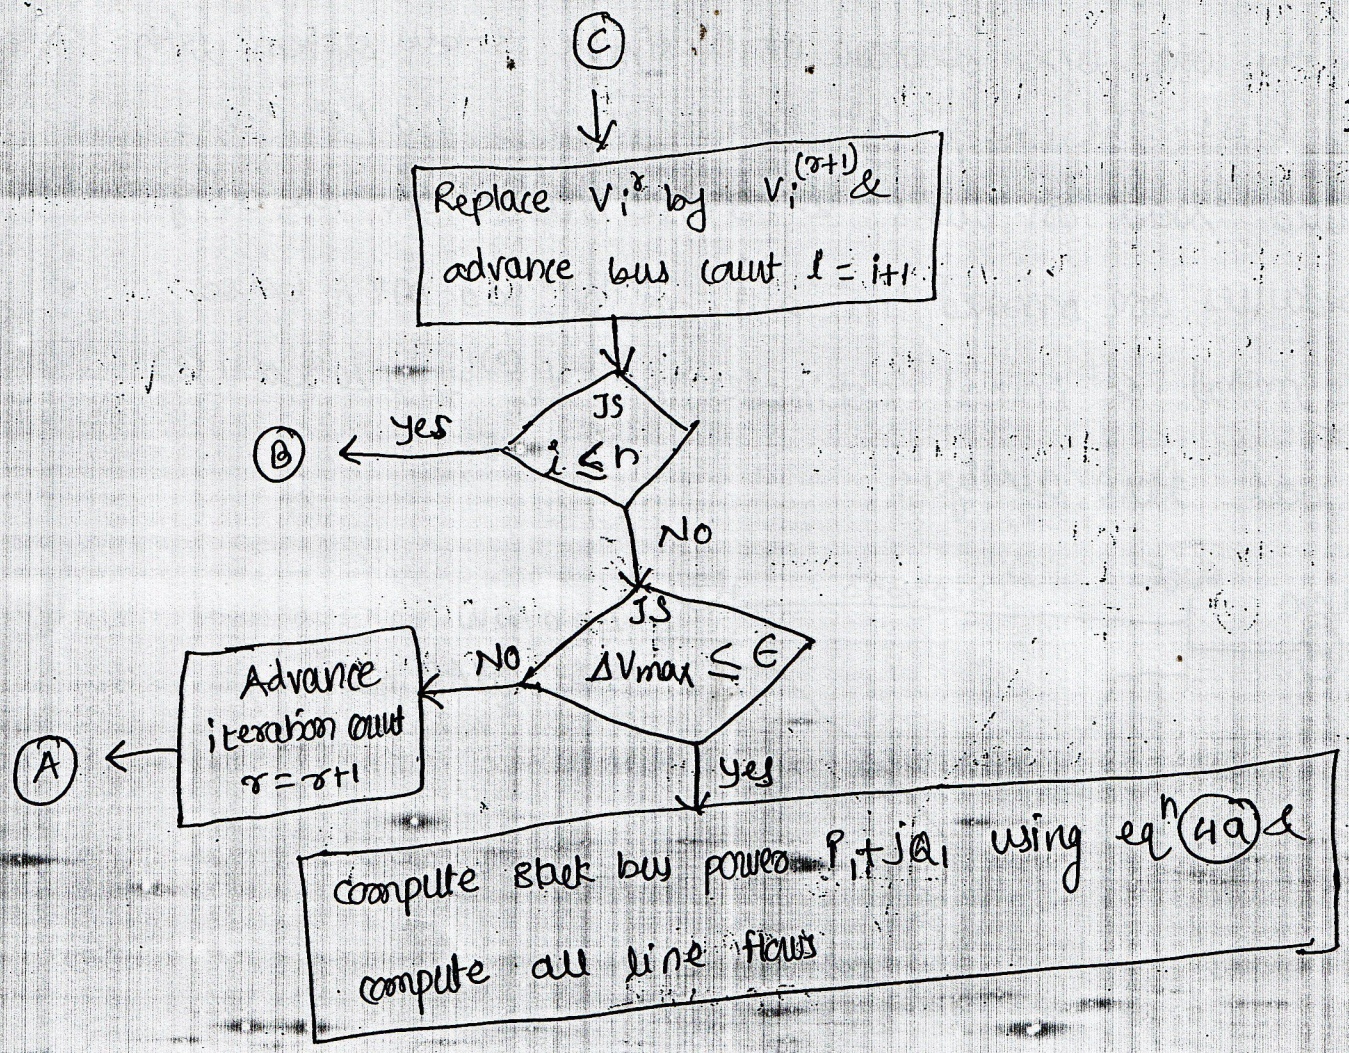 C
Replace Vi^r by Vi^(r+1) &
advance bus count i = i+1
Is
i ≤ n
yes
B
NO
Is
ΔVmax ≤ ϵ
NO
Advance
iteration count
r = r+1
A
yes
compute slack bus power P1+jQ1 using eq^n 4a &
compute all line flows